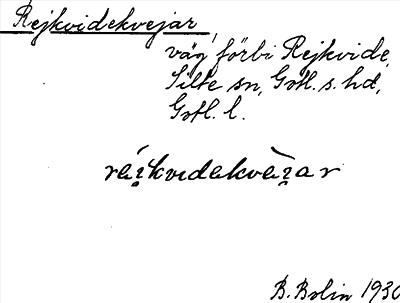 Rejkvidekvejar,
väg förbi Rejkvide,
Silte sn, Gotl. s. hd,
Gotl. l.
ráı̯kvıdakvàı̯ar
B. Bolin 1930